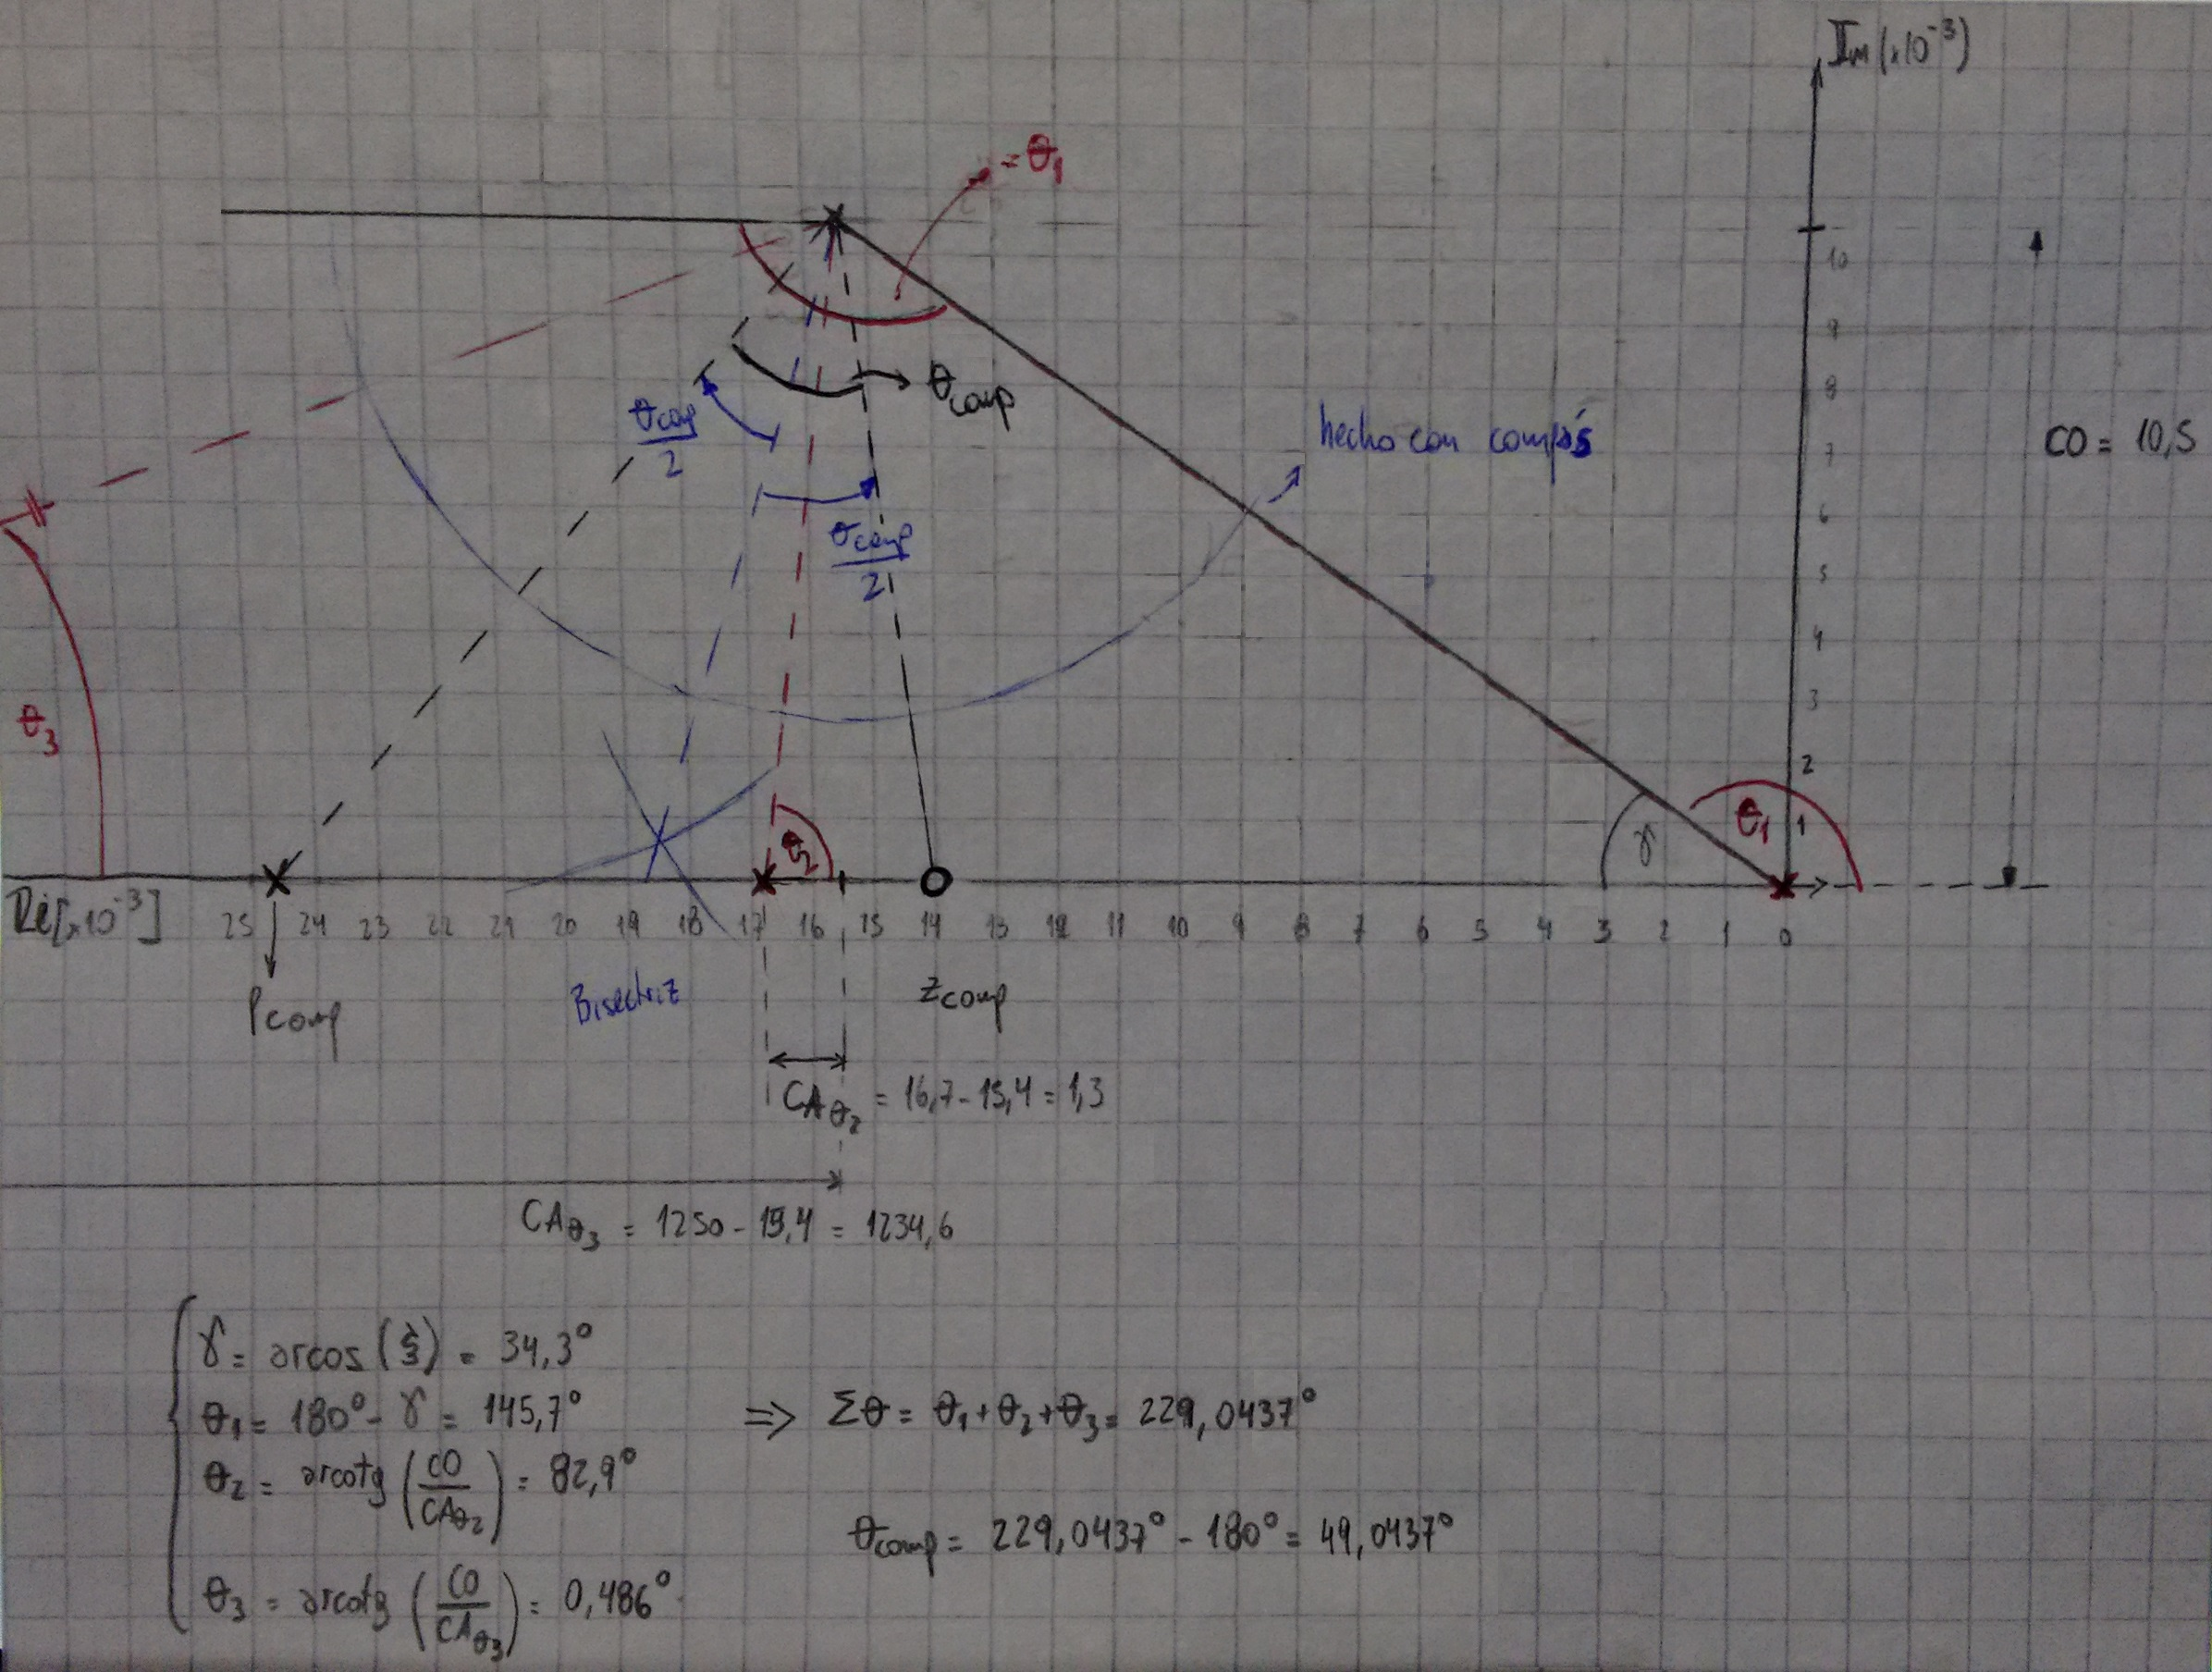 Im(x10⁻³)
= θ₁
10
9
8
7
6
5
4
3
2
1
θcomp
θcomp/2
θcomp/2
hecho con compás
CO = 10,5
θ₃
θ₂
γ
θ₁
Re[x10⁻³]
25 24 23 22 21 20 19 18 17 16 15 14 13 12 11 10 9 8 7 6 5 4 3 2 1 0
Pcomp
Bisectriz
Zcomp
CAθ₂ = 16,7 - 15,4 = 1,3
CAθ₃ = 1250 - 15,4 = 1234,6
γ = arcos( ) = 34,3°
θ₁ = 180° - γ = 145,7°
θ₂ = arcotg(CO/CAθ₂) = 82,9°
θ₃ = arcotg(CO/CAθ₃) = 0,486°
=> Σθ = θ₁ + θ₂ + θ₃ = 229,0437°
θcomp = 229,0437° - 180° = 49,0437°